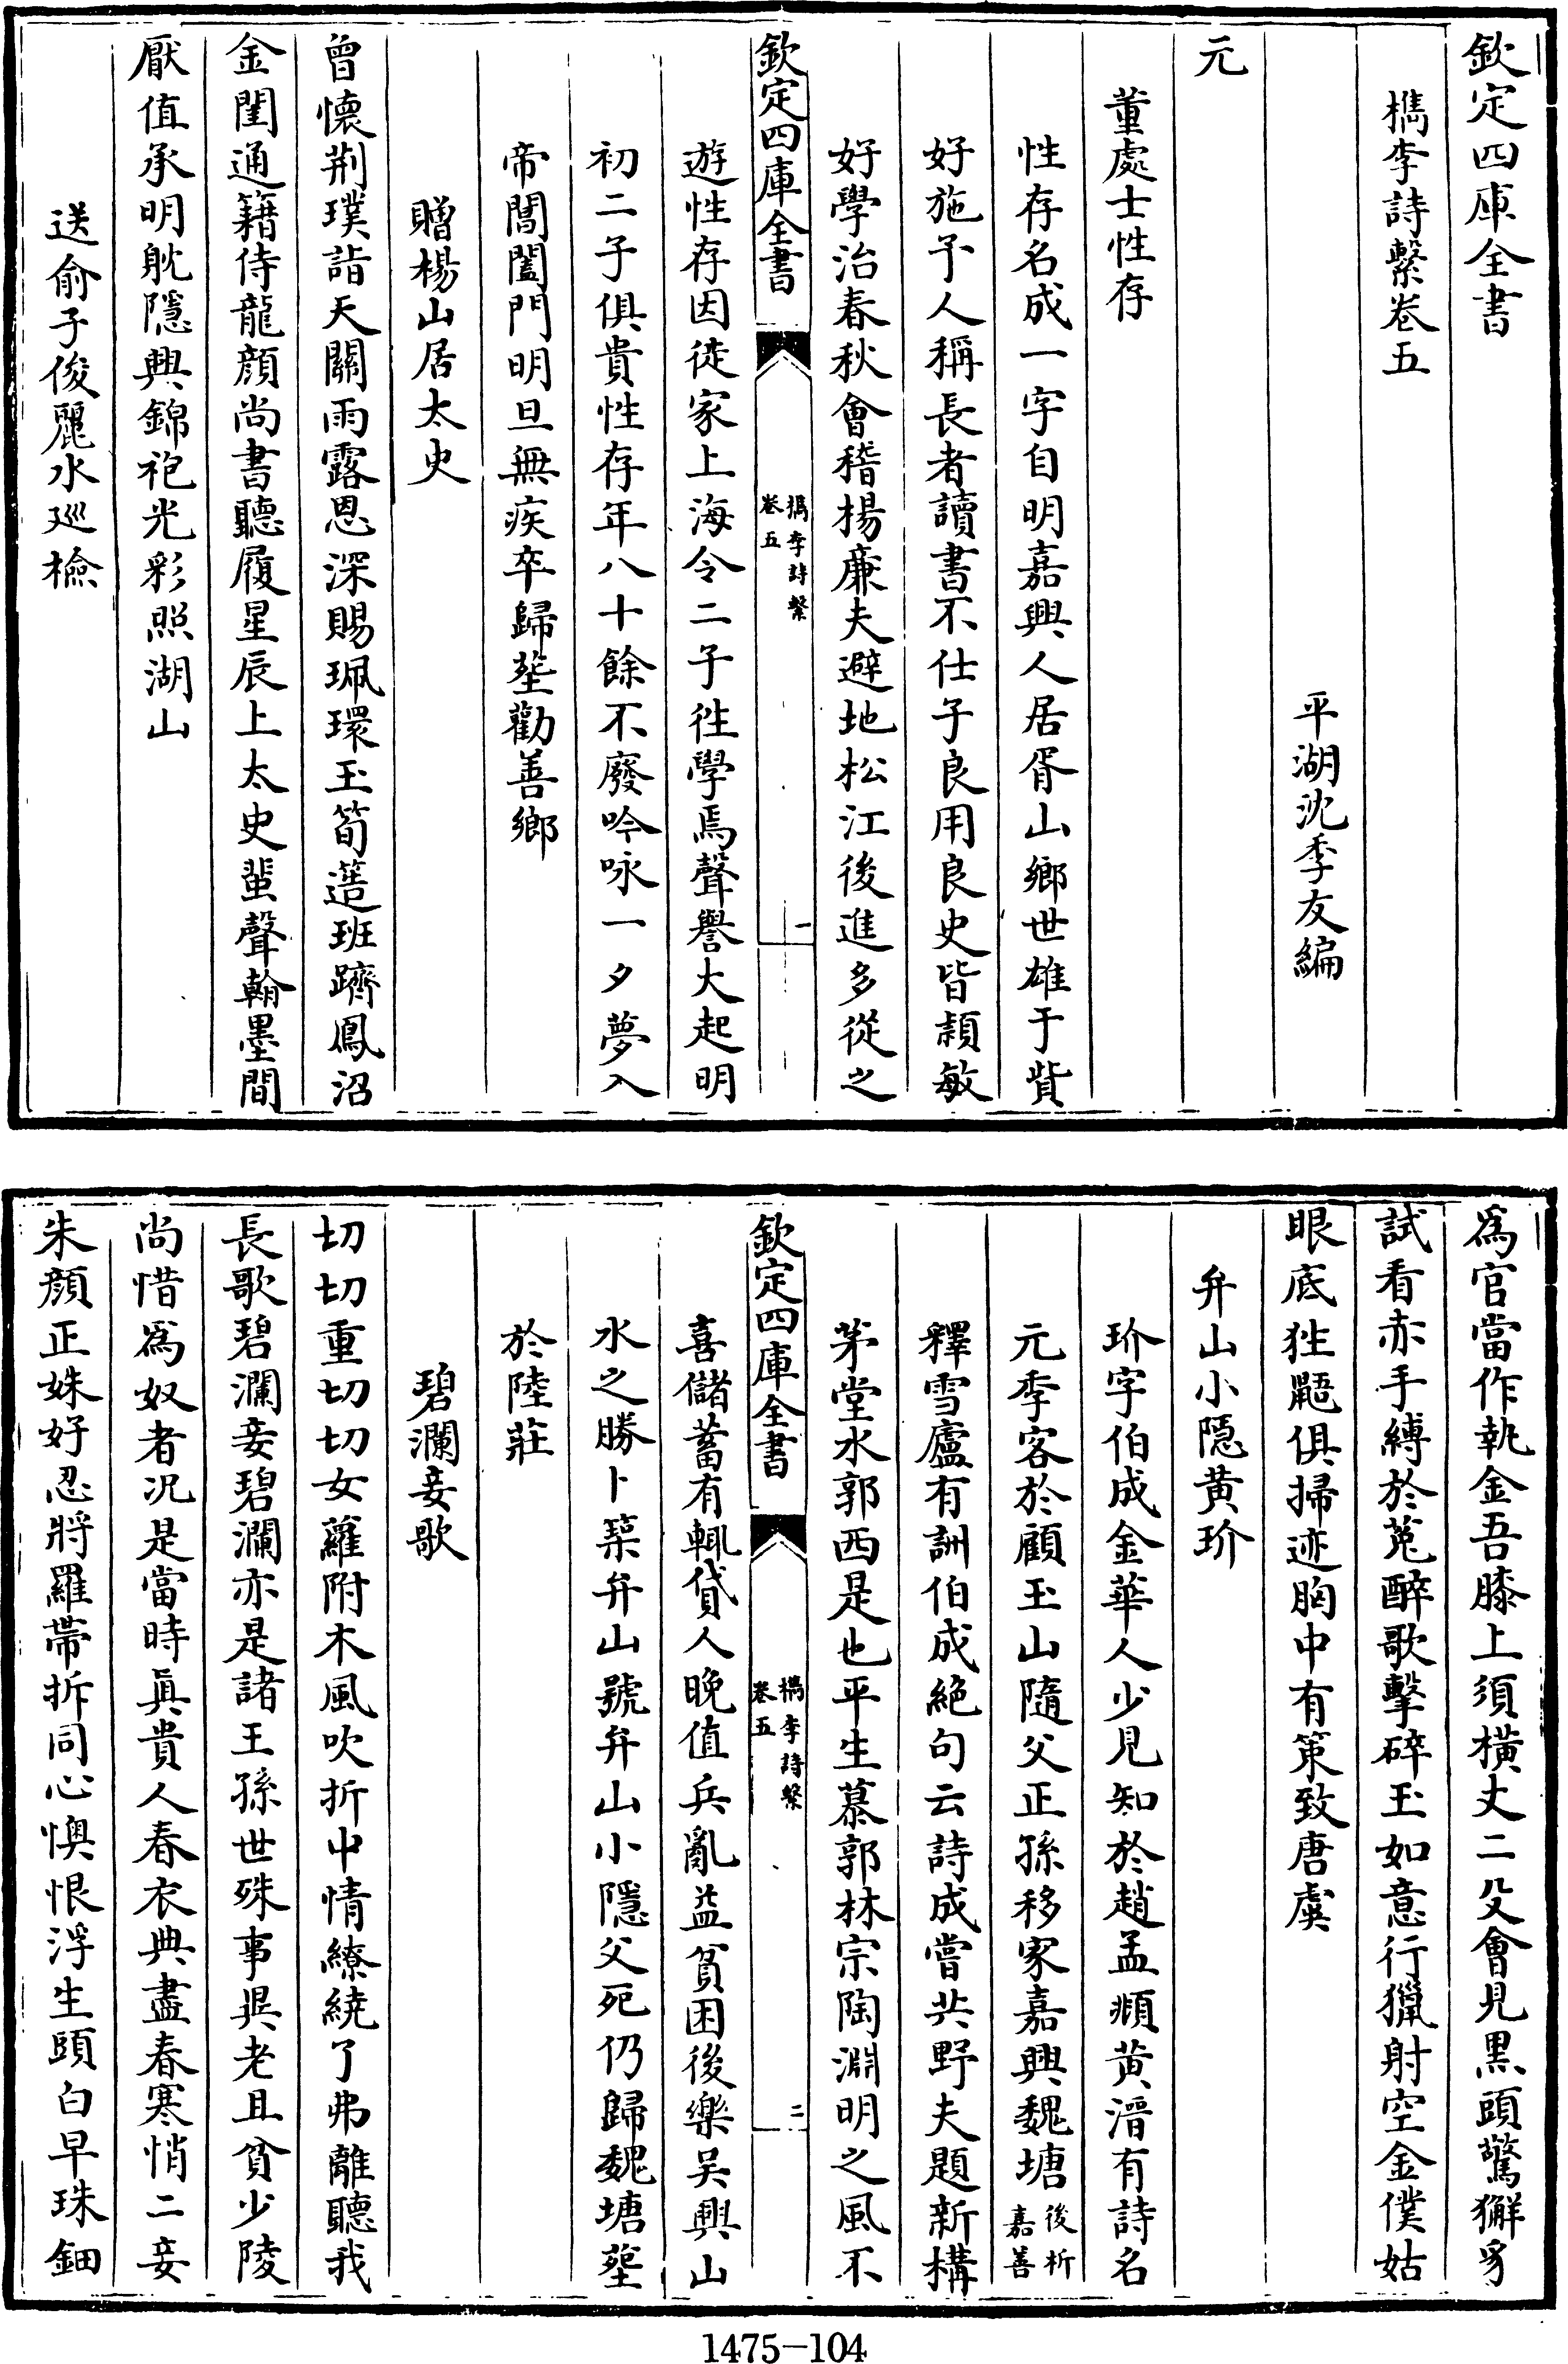 欽定四庫全書
檇李詩繫卷五
平湖沈季友編
元
董處士性存
性存名成一字自明嘉興人居胥山鄉世雄于貲
好施予人稱長者讀書不仕子良用良史皆頴敏
好學治春秋會稽楊廉夫避地松江後進多從之
欽定四庫全書
檇李詩繫
卷五
一
遊性存因徙家上海令二子徃學焉聲譽大起明
初二子俱貴性存年八十餘不廢吟咏一夕夢入
帝閽闔門明旦無疾卒歸塟勸善鄉
贈楊山居太史
曾懷荆璞詣天關雨露恩深賜珮環玉筍簉班躋鳳沼
金閨通籍侍龍顔尚書聽履星辰上太史蜚聲翰墨間
厭值承明躭隱興錦袍光彩照湖山
送俞子俊麗水廵檢
爲官當作執金吾膝上須橫丈二殳會見黒頭驚獬豸
試看赤手縛於菟醉歌擊碎玉如意行獵射空金僕姑
眼底狌鼯俱掃迹胸中有策致唐虞
弁山小隠黄玠
玠字伯成金華人少見知於趙孟頫黄溍有詩名
元季客於顧玉山隨父正孫移家嘉興魏塘後析嘉善
釋雪廬有詶伯成絶句云詩成嘗共野夫題新構
茅堂水郭西是也平生慕郭林宗陶淵明之風不
欽定四庫全書
檇李詩繫
卷五
二
喜儲蓄有輒貸人晩值兵亂益貧困後樂吴興山
水之勝卜築弁山號弁山小隱父死仍歸魏塘塟
於陸莊
碧瀾妾歌
切切重切切女蘿附木風吹折中情繚繞了弗離聽我
長歌碧瀾妾碧瀾亦是諸王孫世殊事異老且貧少陵
尚惜爲奴者况是當時眞貴人春衣典盡春寒悄二妾
朱顔正姝好忍將羅帶拆同心懊恨浮生頭白早珠鈿
1475-104